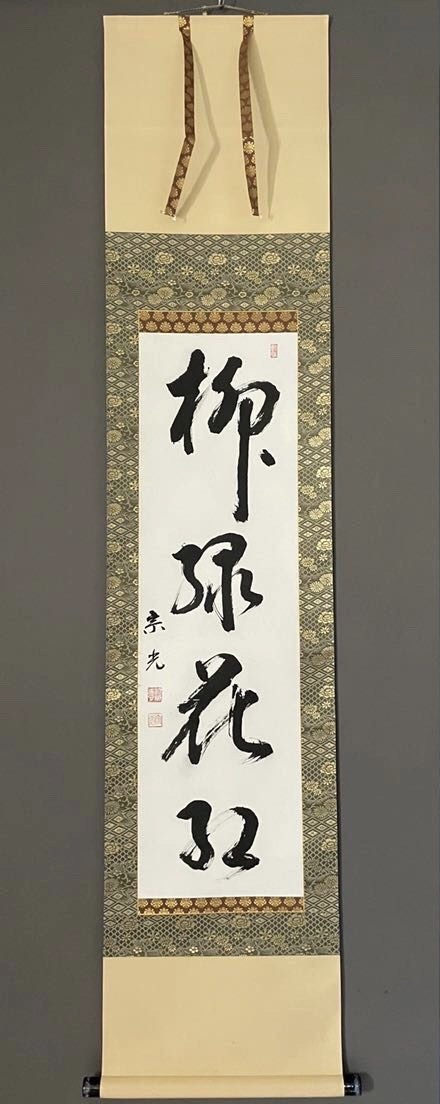 柳緑花紅
宗光